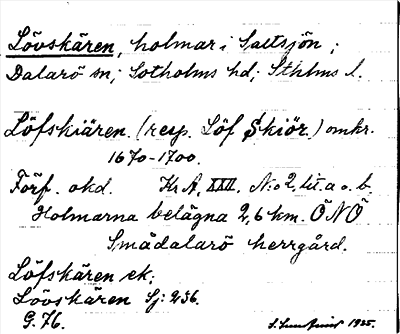 Lövskären, holmar i Saltsjön;
Dalarö sn; Sotholms hd; Sthlms l.
Löfskiären. (resp. Löf Skiör.) omkr.
1670-1700.
Förf. okd. Kr. A, XXII, N:o 2, lit. a o. b.
Holmarna belägna 2,6 km. ÖNÖ
Smådalarö herrgård.
Löfskären ek;
Lövskären Sj: 236.
G. 76.
1925.